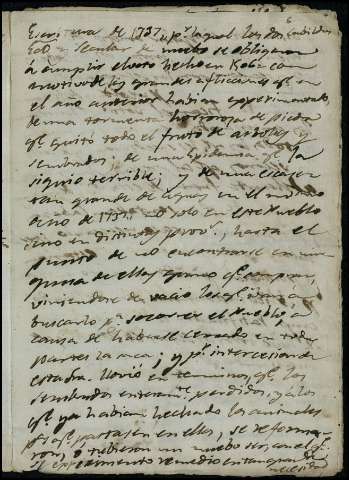 Escritura de 1737 pr. la qual los dos Cabildos
Ecco. y Secular de nuebo se obligaron
á cumplir el voto hecho en
motivo de las grandes aflicciones qe. en
el año anterior habian experimentado,
de una tormenta horrorosa de piedra
qe. quitó todo el fruto de arboles y
sembrados; de una Epidemia qe. la
siguió terrible; y de una escasez
tan grande de aguas en el mismo
año de 1737. no solo en este Pueblo
sino en distintas provs., hasta el
punto de no encontrarse en
ninguna de ellas grano qe. comprar,
viniendose de vacio los qe. iban á
buscarlo pa. socorrer el Pueblo, a
causa de haberse cerrado en todas
partes la saca; y pr. intercesion de
esta Sa. llovió en terminos, qe. los
sembrados enteramte. perdidos, y a los
qe. ya habian hechado los animales
pa. qe. pastasen en ellos, se reforma-
ron, y tubieron un nuebo ser, con el qe.
se experimento remedio en tan grande
necesidad